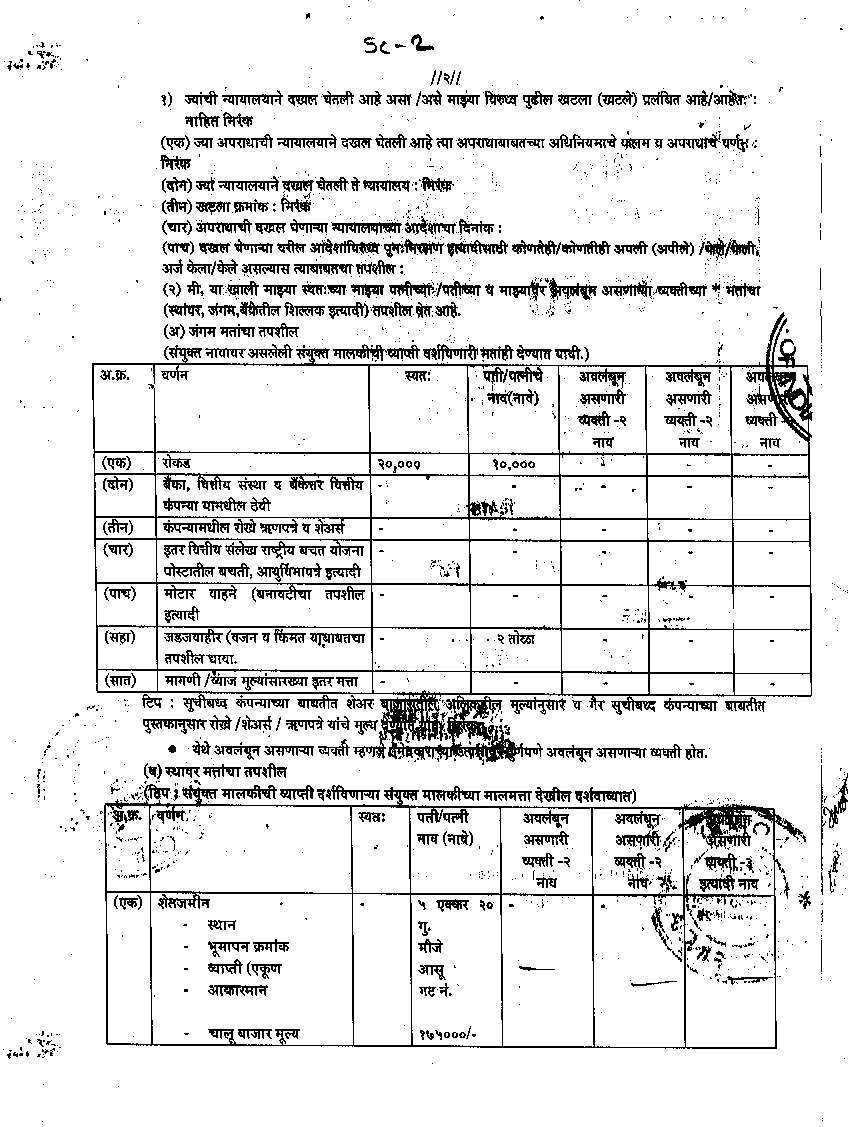 SC-2
//२//
१) ज्यांची न्यायालयाने दखल घेतली आहे असा /असे माझ्या विरुध्द पुढील खटला (खटले) प्रलंबित आहे/आहेत :
नाहित निरंक
(एक) ज्या अपराधाची न्यायालयाने दखल घेतली आहे त्या अपराधाबाबतच्या अधिनियमाचे कलम व अपराधाचे वर्णन :
निरंक
(दोन) ज्या न्यायालयाने दखल घेतली ते न्यायालय : निरंक
(तीन) खटला क्रमांक : निरंक
(चार) अपराधाची दखल घेणाऱ्या न्यायालयाच्या आदेशाचा दिनांक :
(पाच) दखल घेणाऱ्या वरील आदेशाविरुध्द पुनःनिरक्षण इत्यादीसाठी कोणतेही/कोणतीही अपली (अपीले) /केले/केली,
अर्ज केला/केले असल्यास त्याबाबतचा तपशील :
(२) मी, या खाली माझ्या स्वतःच्या माझ्या पत्नीच्या /पतीच्या व माझ्यावर अवलंबून असणाऱ्या व्यक्तीच्या * मतांचा
(स्थावर, जंगम,बँकेतील शिल्लक इत्यादी) तपशील देत आहे.
(अ) जंगम मतांचा तपशील
(संयुक्त नावावर असलेली संयुक्त मालकीची व्याप्ती दर्शविणारी मतांही देण्यात यावी.)
अ.क्र. वर्णन स्वतः पती/पत्नीचे नाव(नावे) अवलंबून असणारी व्यक्ती -२ नाव अवलंबून असणारी व्यक्ती -२ नाव
(एक) रोकड २०,००० १०,००० - - -
(दोन) बँका, वित्तीय संस्था व बँकेत्तर वित्तीय - - - -
कंपन्या यामधील ठेवी
(तीन) कंपन्यामधील रोखे ऋणपत्रे व शेअर्स - - - - -
(चार) इतर वित्तीय संलेख राष्ट्रीय बचत योजना - - - - -
पोस्टातील बचती, आयुर्विमापत्रे इत्यादी
(पाच) मोटार वाहने (बनावटीचा तपशील - - - - -
इत्यादी
(सहा) जडजवाहीर (वजन व किंमत याबाबतचा - २ तोळा - - -
तपशील द्यावा.
(सात) मागणी /व्याज मुल्यांसारख्या इतर मत्ता - - - - -
टिप : सुचीबध्द कंपन्याच्या बाबतीत शेअर बाजारातील मुल्यांनुसार व गैर सुचीबध्द कंपन्याच्या बाबतीत
पुस्तकानुसार रोखे /शेअर्स / ऋणपत्रे यांचे मुल्य
• येथे अवलंबून असणाऱ्या व्यक्ती म्हणजे अवलंबून असणाऱ्या व्यक्ती होत.
(ब) स्थावर मत्तांचा तपशील
(टिप : संयुक्त मालकीची व्याप्ती दर्शविणाऱ्या संयुक्त मालकीच्या मालमत्ता देखील दर्शवाव्यात)
अ.क्र. वर्णन स्वतः पती/पत्नी नाव (नावे) अवलंबून असणारी व्यक्ती -२ नाव अवलंबून असणारी व्यक्ती -२ नाव असणारी व्यक्ती -३ इत्यादी नाव
(एक) शेतजमीन - ५ एक्कर २० - -
- स्थान गु.
- भूमापन क्रमांक मौजे
- व्याप्ती (एकूण आसू
- आकारमान गट नं.
- चालू बाजार मूल्य १७५०००/-